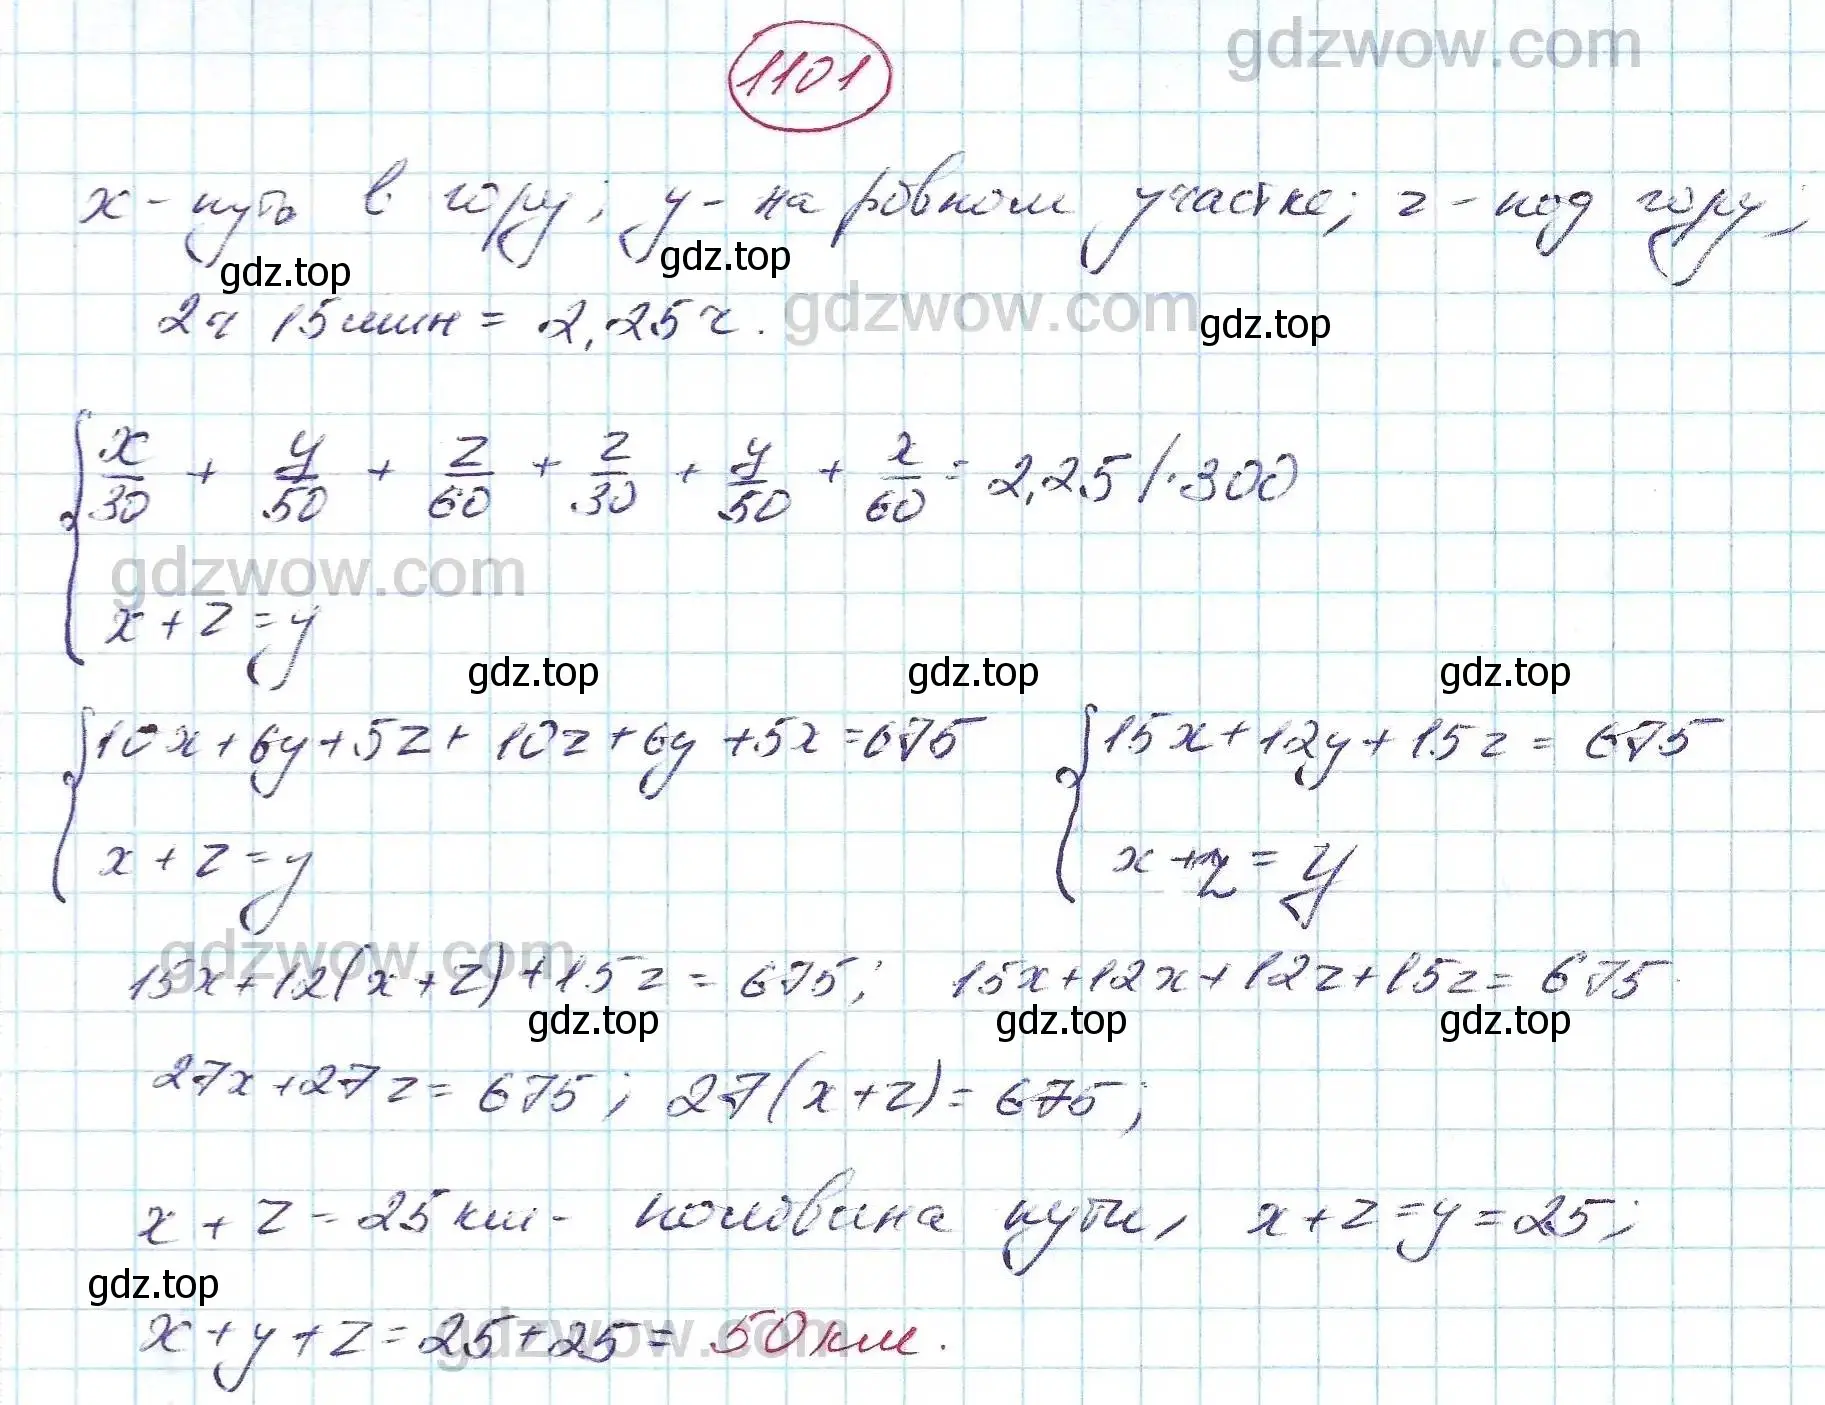 gdzwow.com
1101
x - путь в гору; y - на ровном участке; z - под гору;
gdz.top gdz.top
2ч 15мин = 2,25ч. gdzwow.com gdz.top
x/30 + y/50 + z/60 + z/30 + y/50 + x/60 = 2,25 /·300
gdzwow.com
x + z = y
gdz.top gdz.top gdz.top
10x + 6y + 5z + 10z + 6y + 5x = 675 15x + 12y + 15z = 675
x + z = y x + z = y
gdzwow.com
15x + 12(x + z) + 15z = 675; 15x + 12x + 12z + 15z = 675
gdz.top gdz.top gdz.top
27x + 27z = 675; 27(x + z) = 675;
x + z = 25 км - половина пути, x + z = y = 25;
gdz.top
x + y + z = 25 + 25 = 50 км.
gdzwow.com